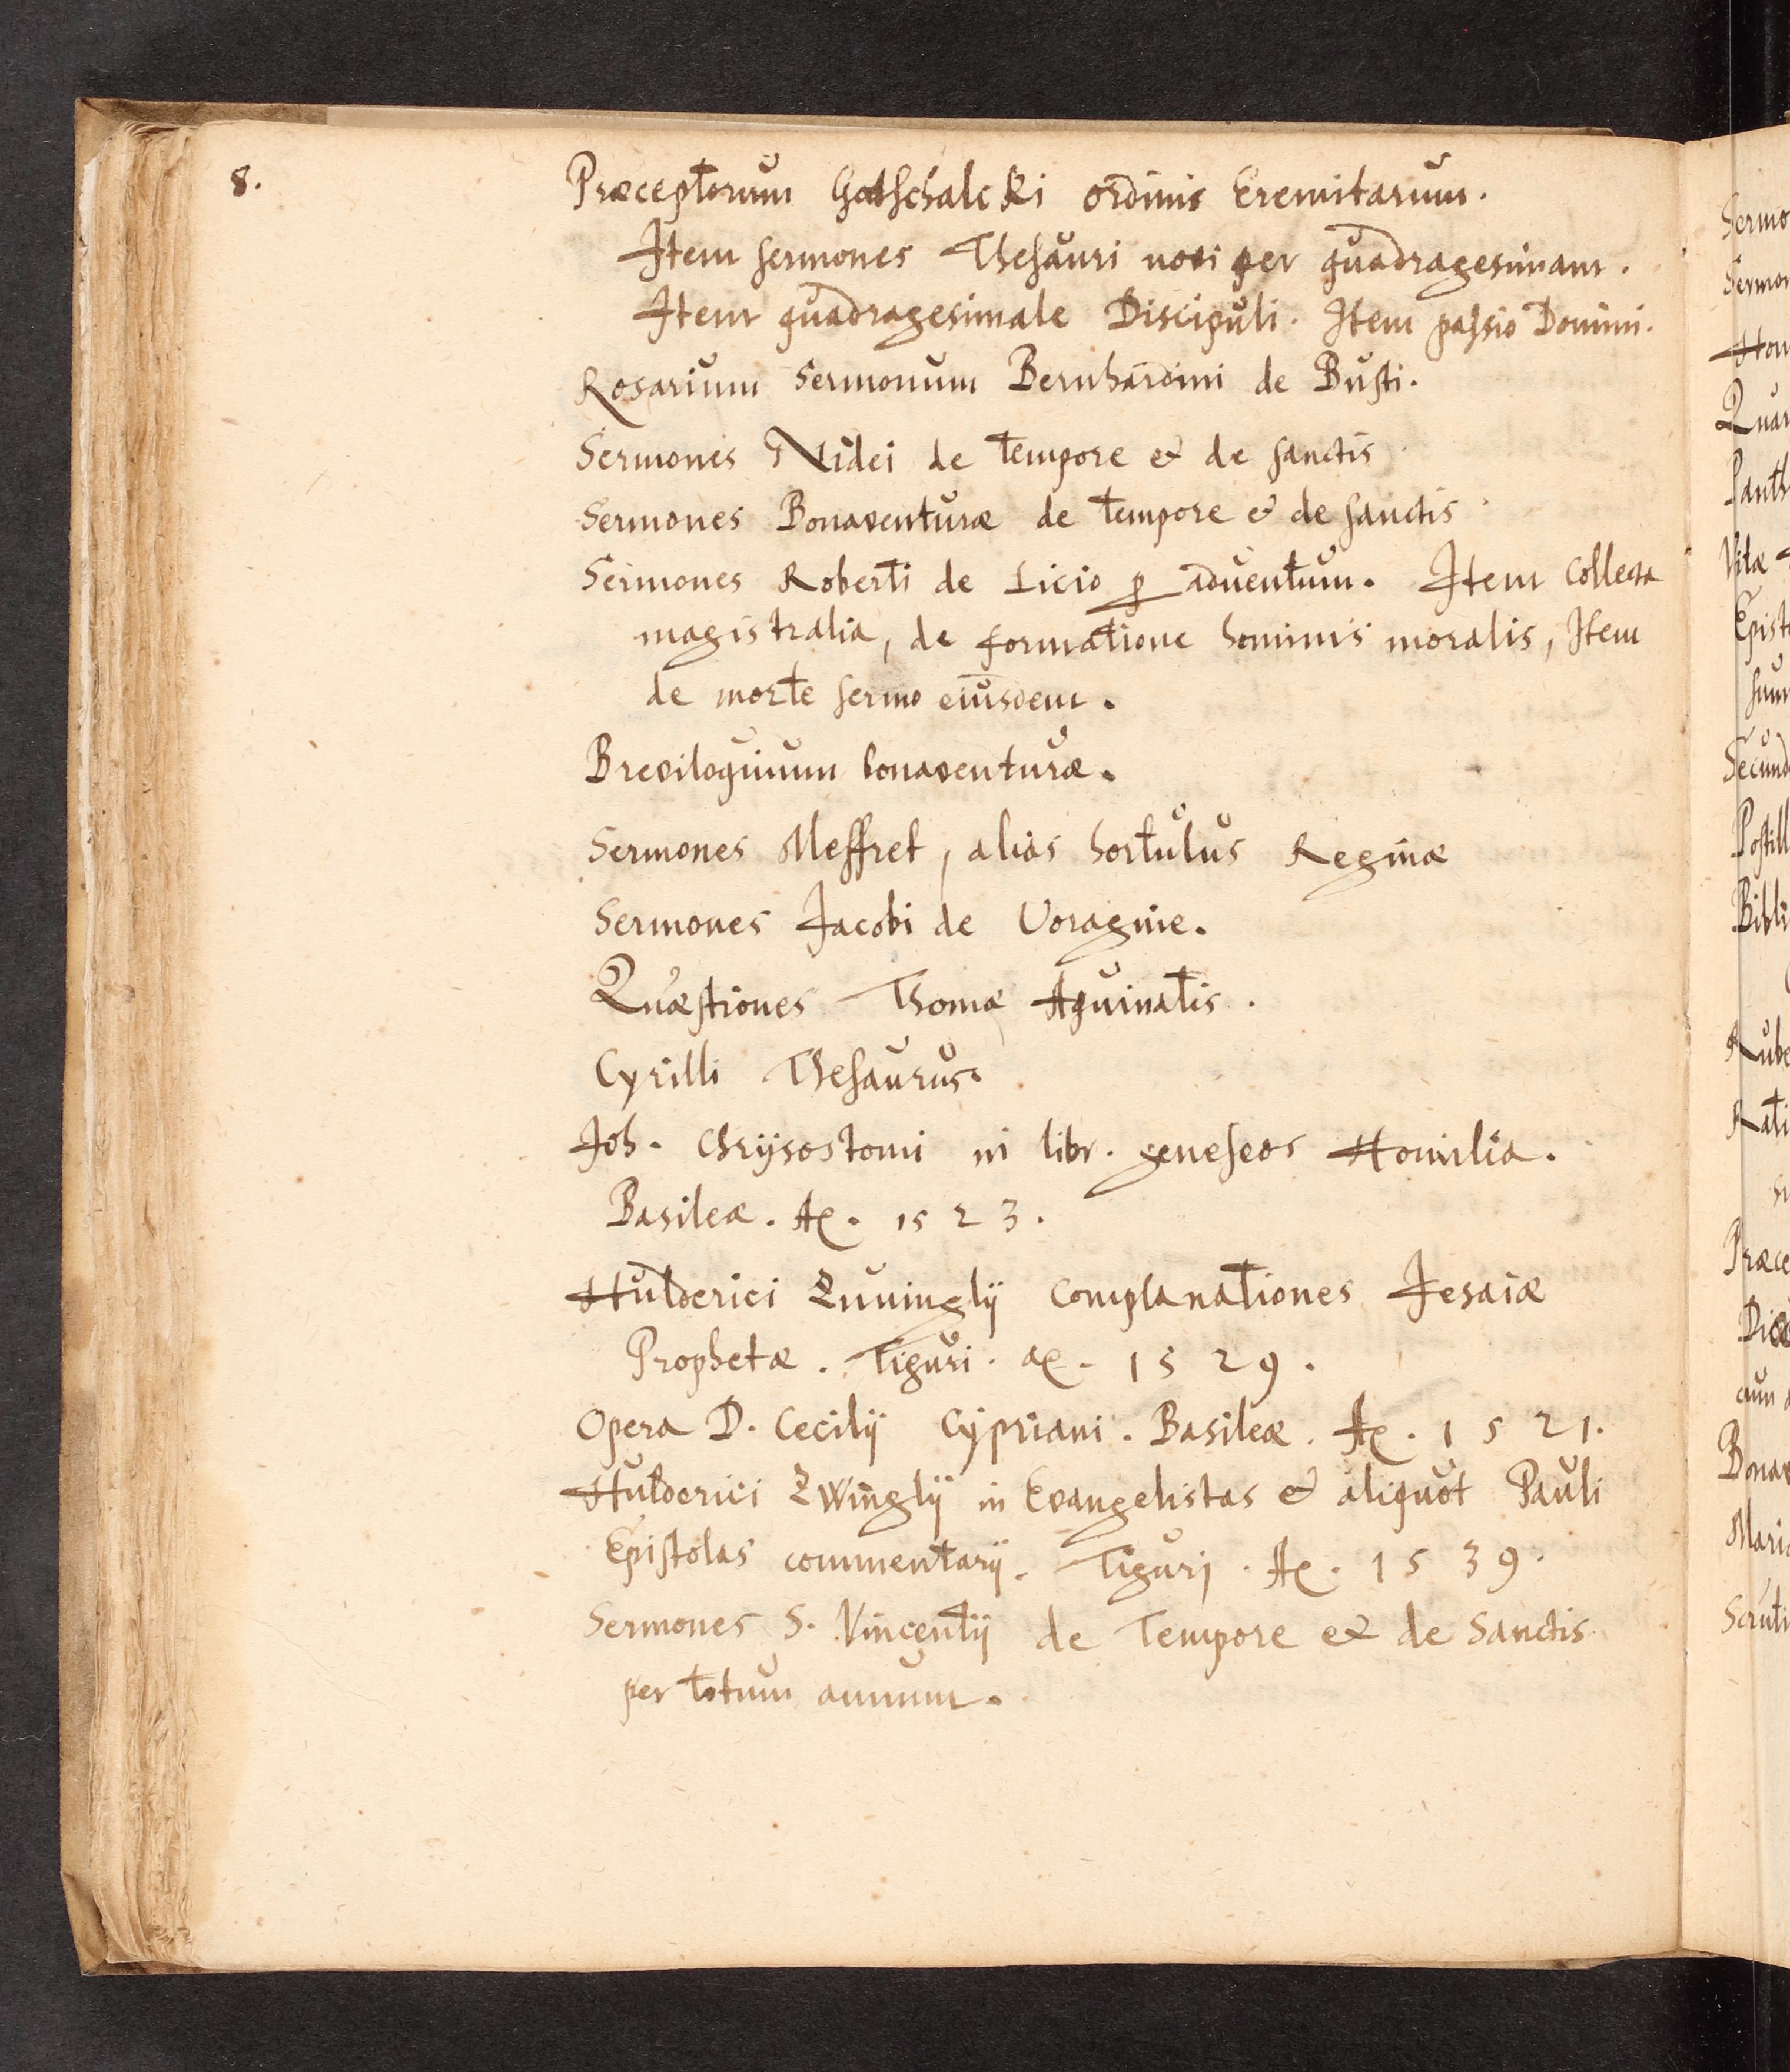 8.
Præceptorum Gotschalcki ordinis Eremitarum.
Item sermones Thesauri novi per quadragesimam.
Item quadragesimale Discipuli. Item passio Domini.
Rosarium Sermonum Bernhardini de Busti.
Sermones Nidei de tempore & de sanctis
Sermones Bonaventuræ de tempore & de sanctis
Sermones Roberti de Licio ꝑ adventum. Item Collecta
magistralia, de formatione hominis moralis, Item
de morte sermo eiusdem.
Breviloquium bonaventuræ.
Sermones Meffret, alias hortulus Reginæ
Sermones Jacobi de Voragine.
Quæstiones Thomæ Aquinatis.
Cyrilli Thesaurus.
Joh. Chrÿsostomi in libr. geneseos Homilia.
Basileæ. Aᵒ. 1523.
Hulderici Zuuinglÿ Complanationes Jesaiæ
Prophetæ. Tiguri. aᵒ. 1529.
Opera D. Cecilÿ Cÿpriani. Basileæ. Aᵒ. 1521.
Hulderici Zwinglÿ in Evangelistas & aliquot Pauli
Epistolas commentarÿ. Tiguri. Aᵒ. 1539.
Sermones S. Vincentÿ de Tempore & de Sanctis
per totum annum.
Sermo
Sermon
Hom
Quar
Panth
Vitæ
Episto
sum
Secund
Postill
Bibli
Rube
Rati
Præce
cum
Bonav
Mari
Scruti